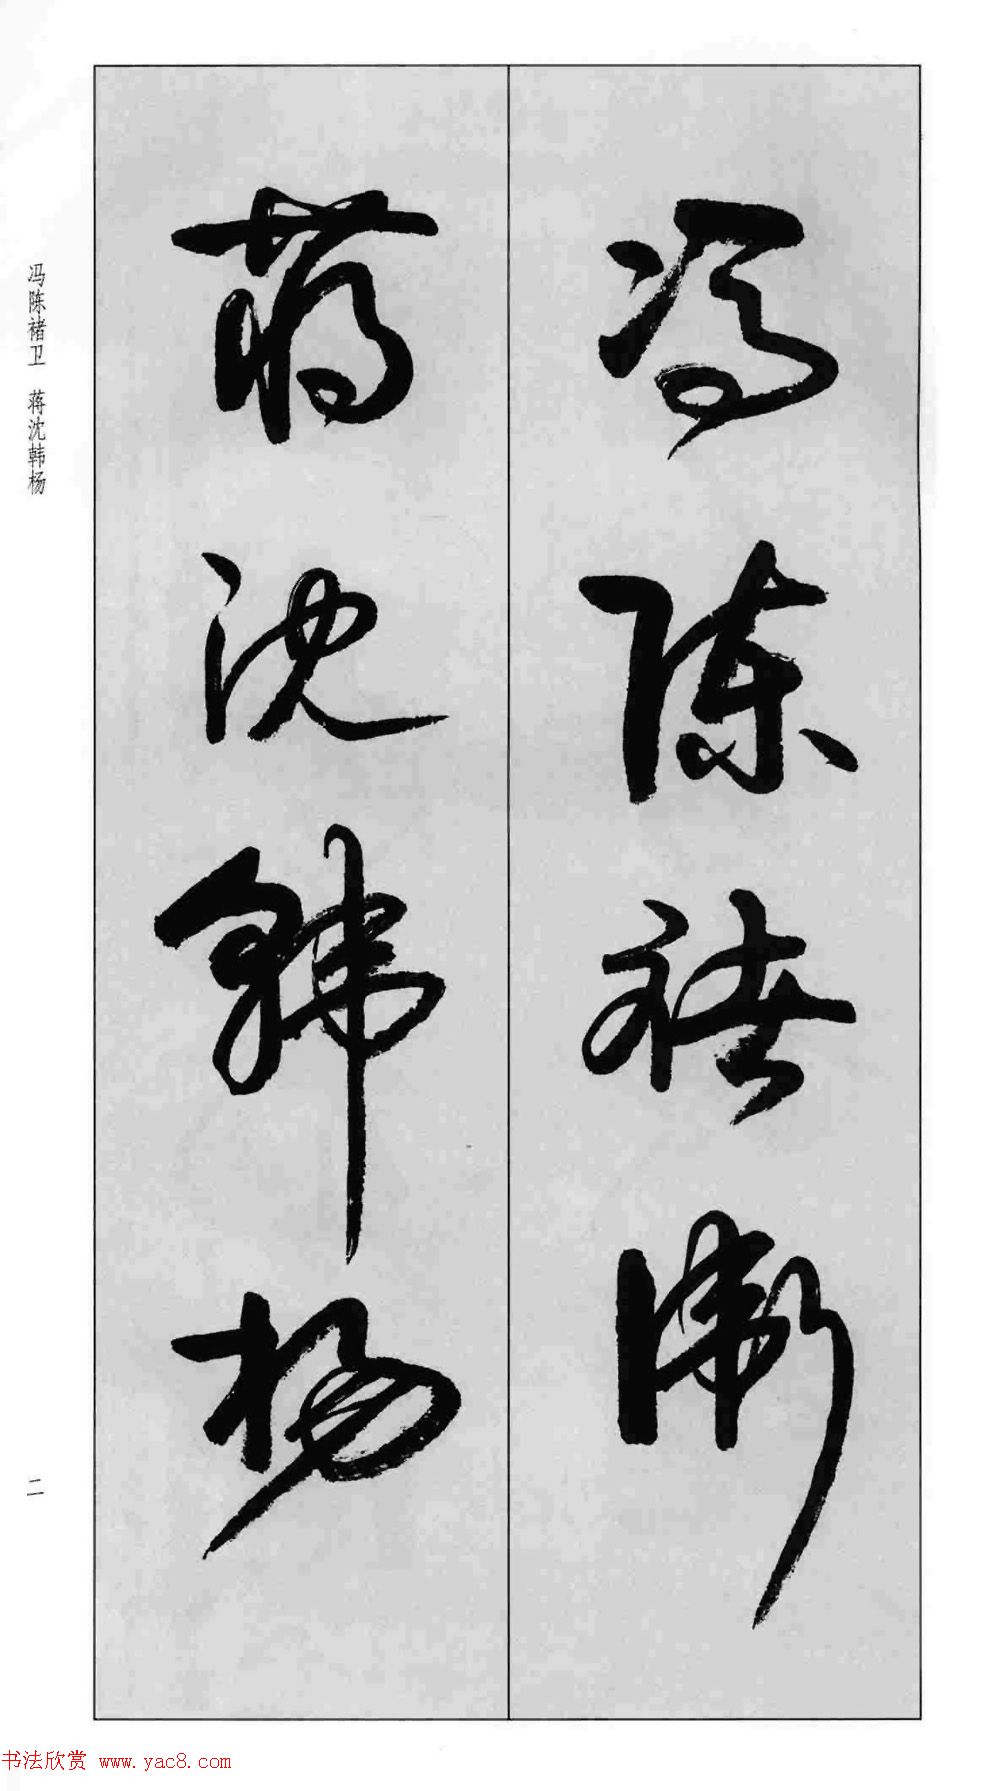 馮陳褚衛
蔣沈韓楊
冯陈褚卫 蒋沈韩杨
二
书法欣赏 www.yac8.com